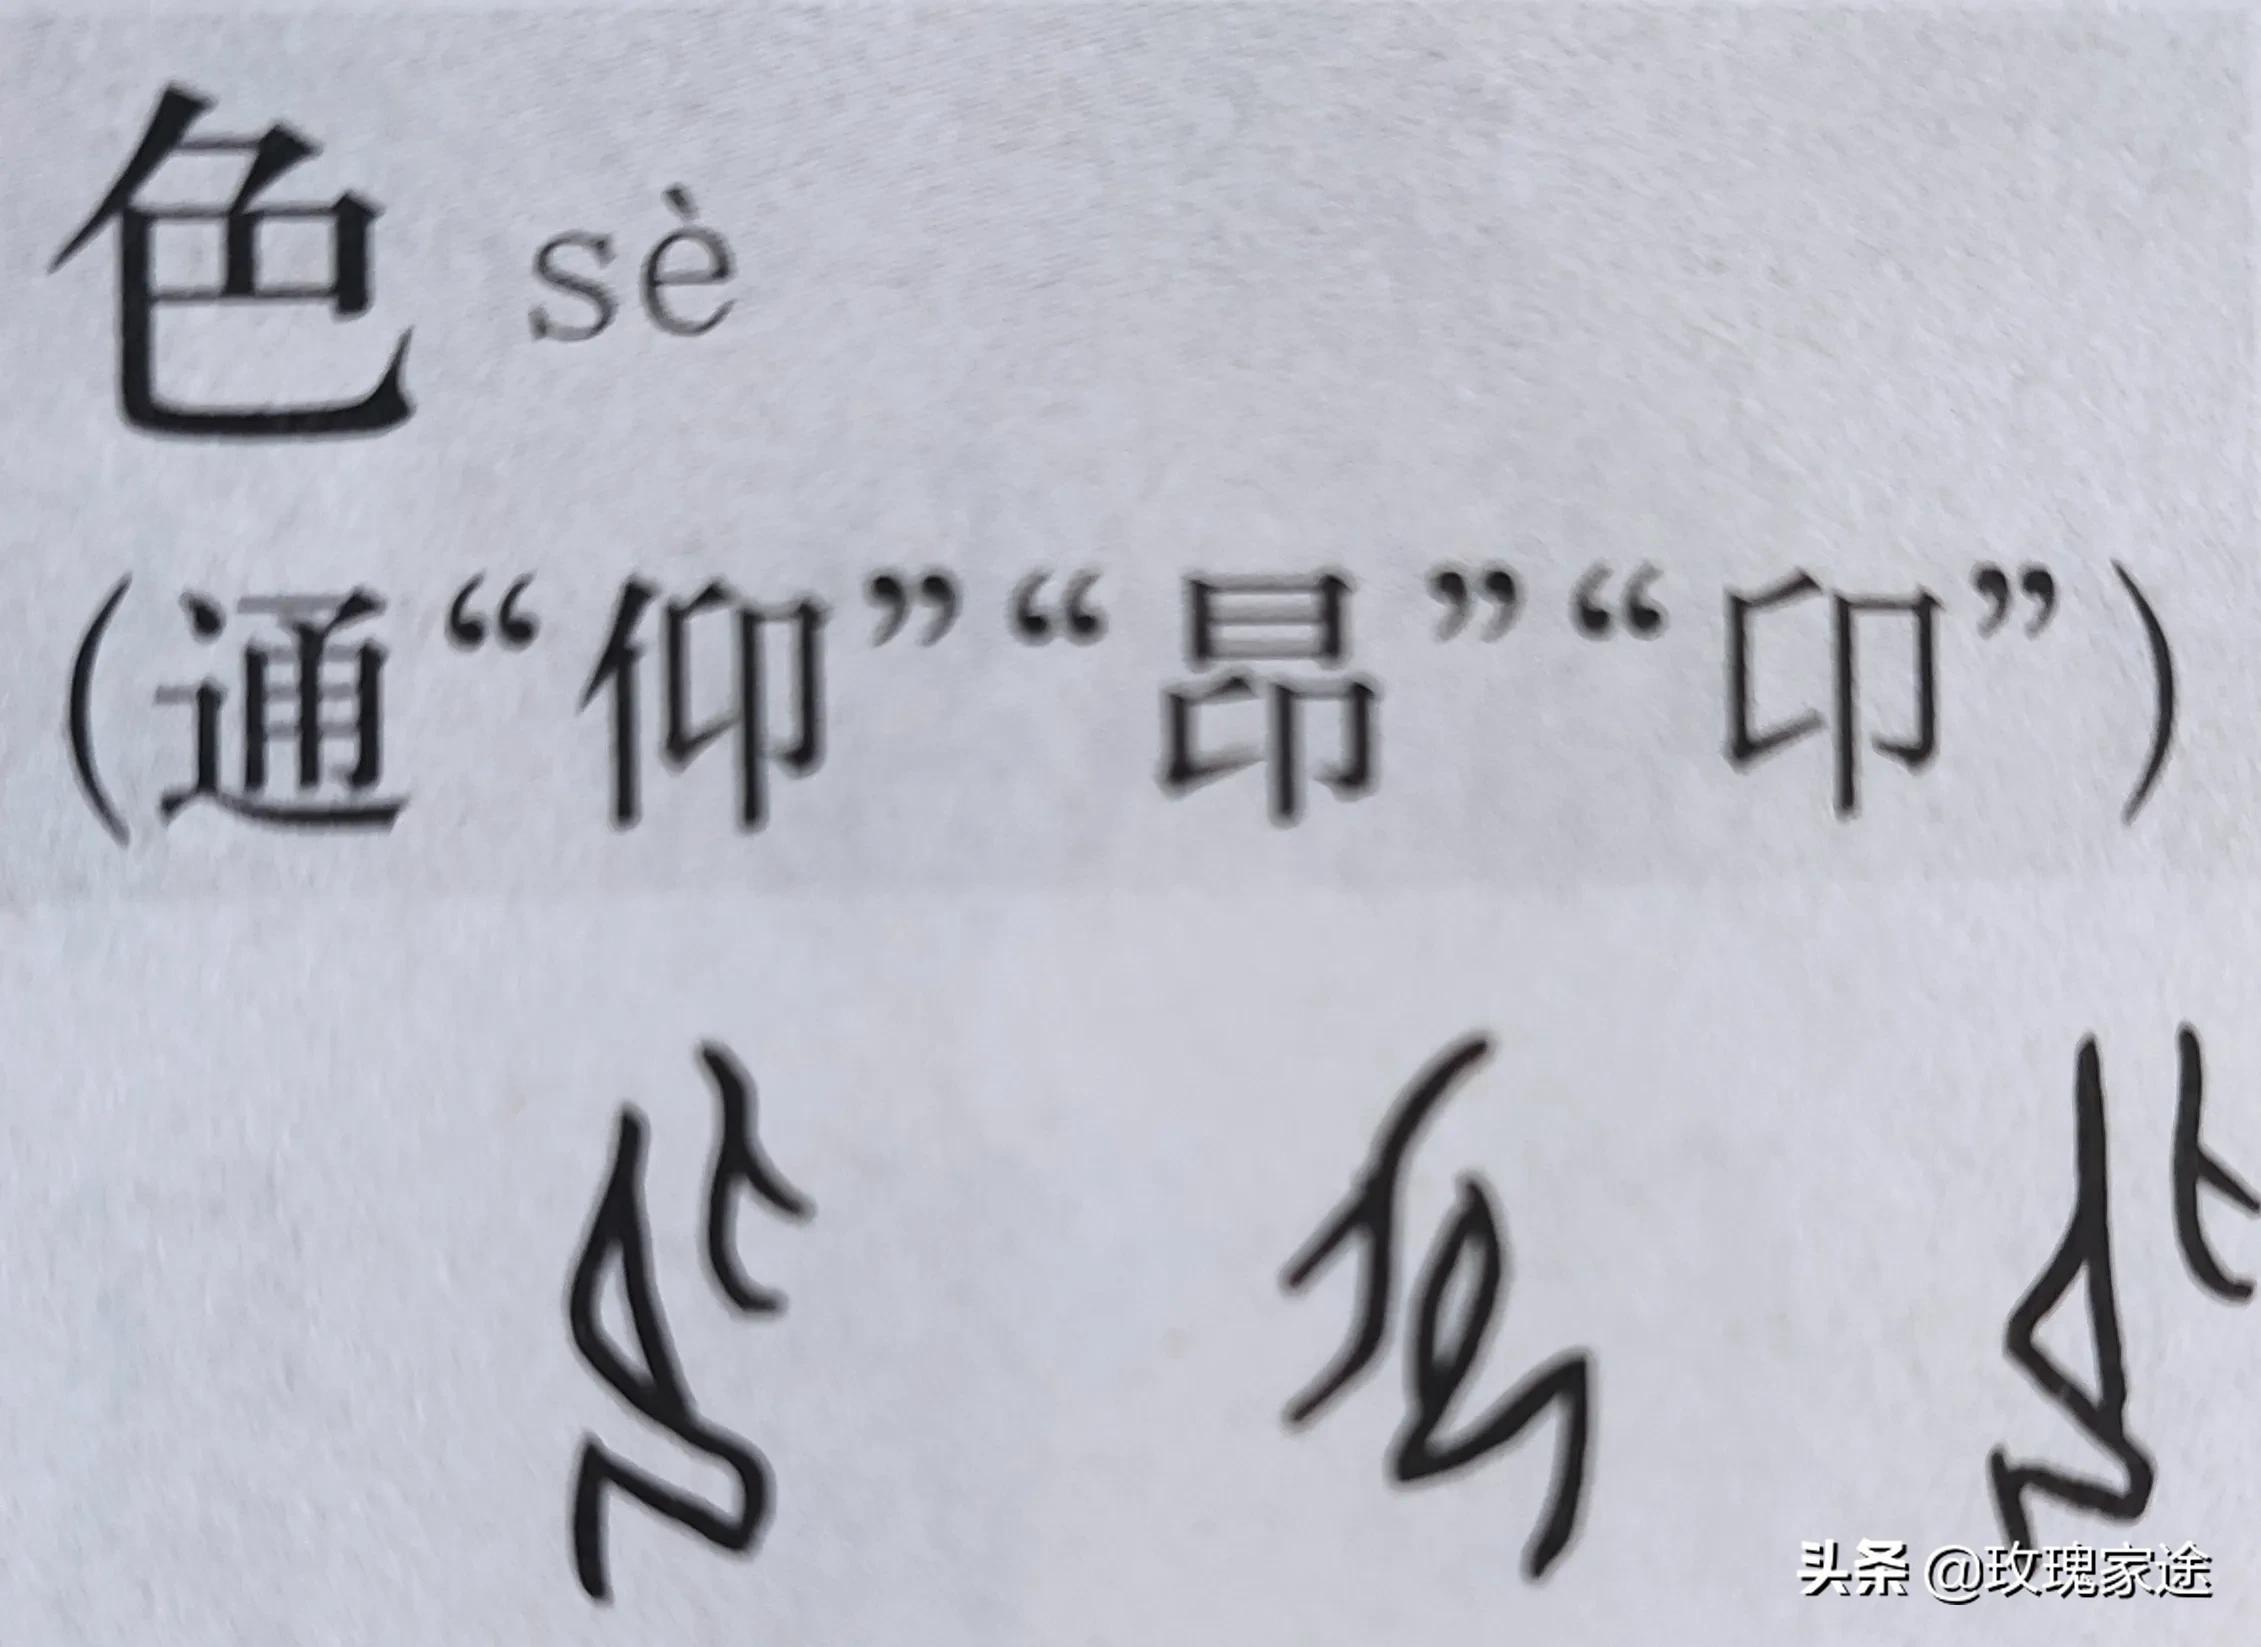 色 sè
(通“仰”“昂”“卬”)
头条 @玫瑰家途